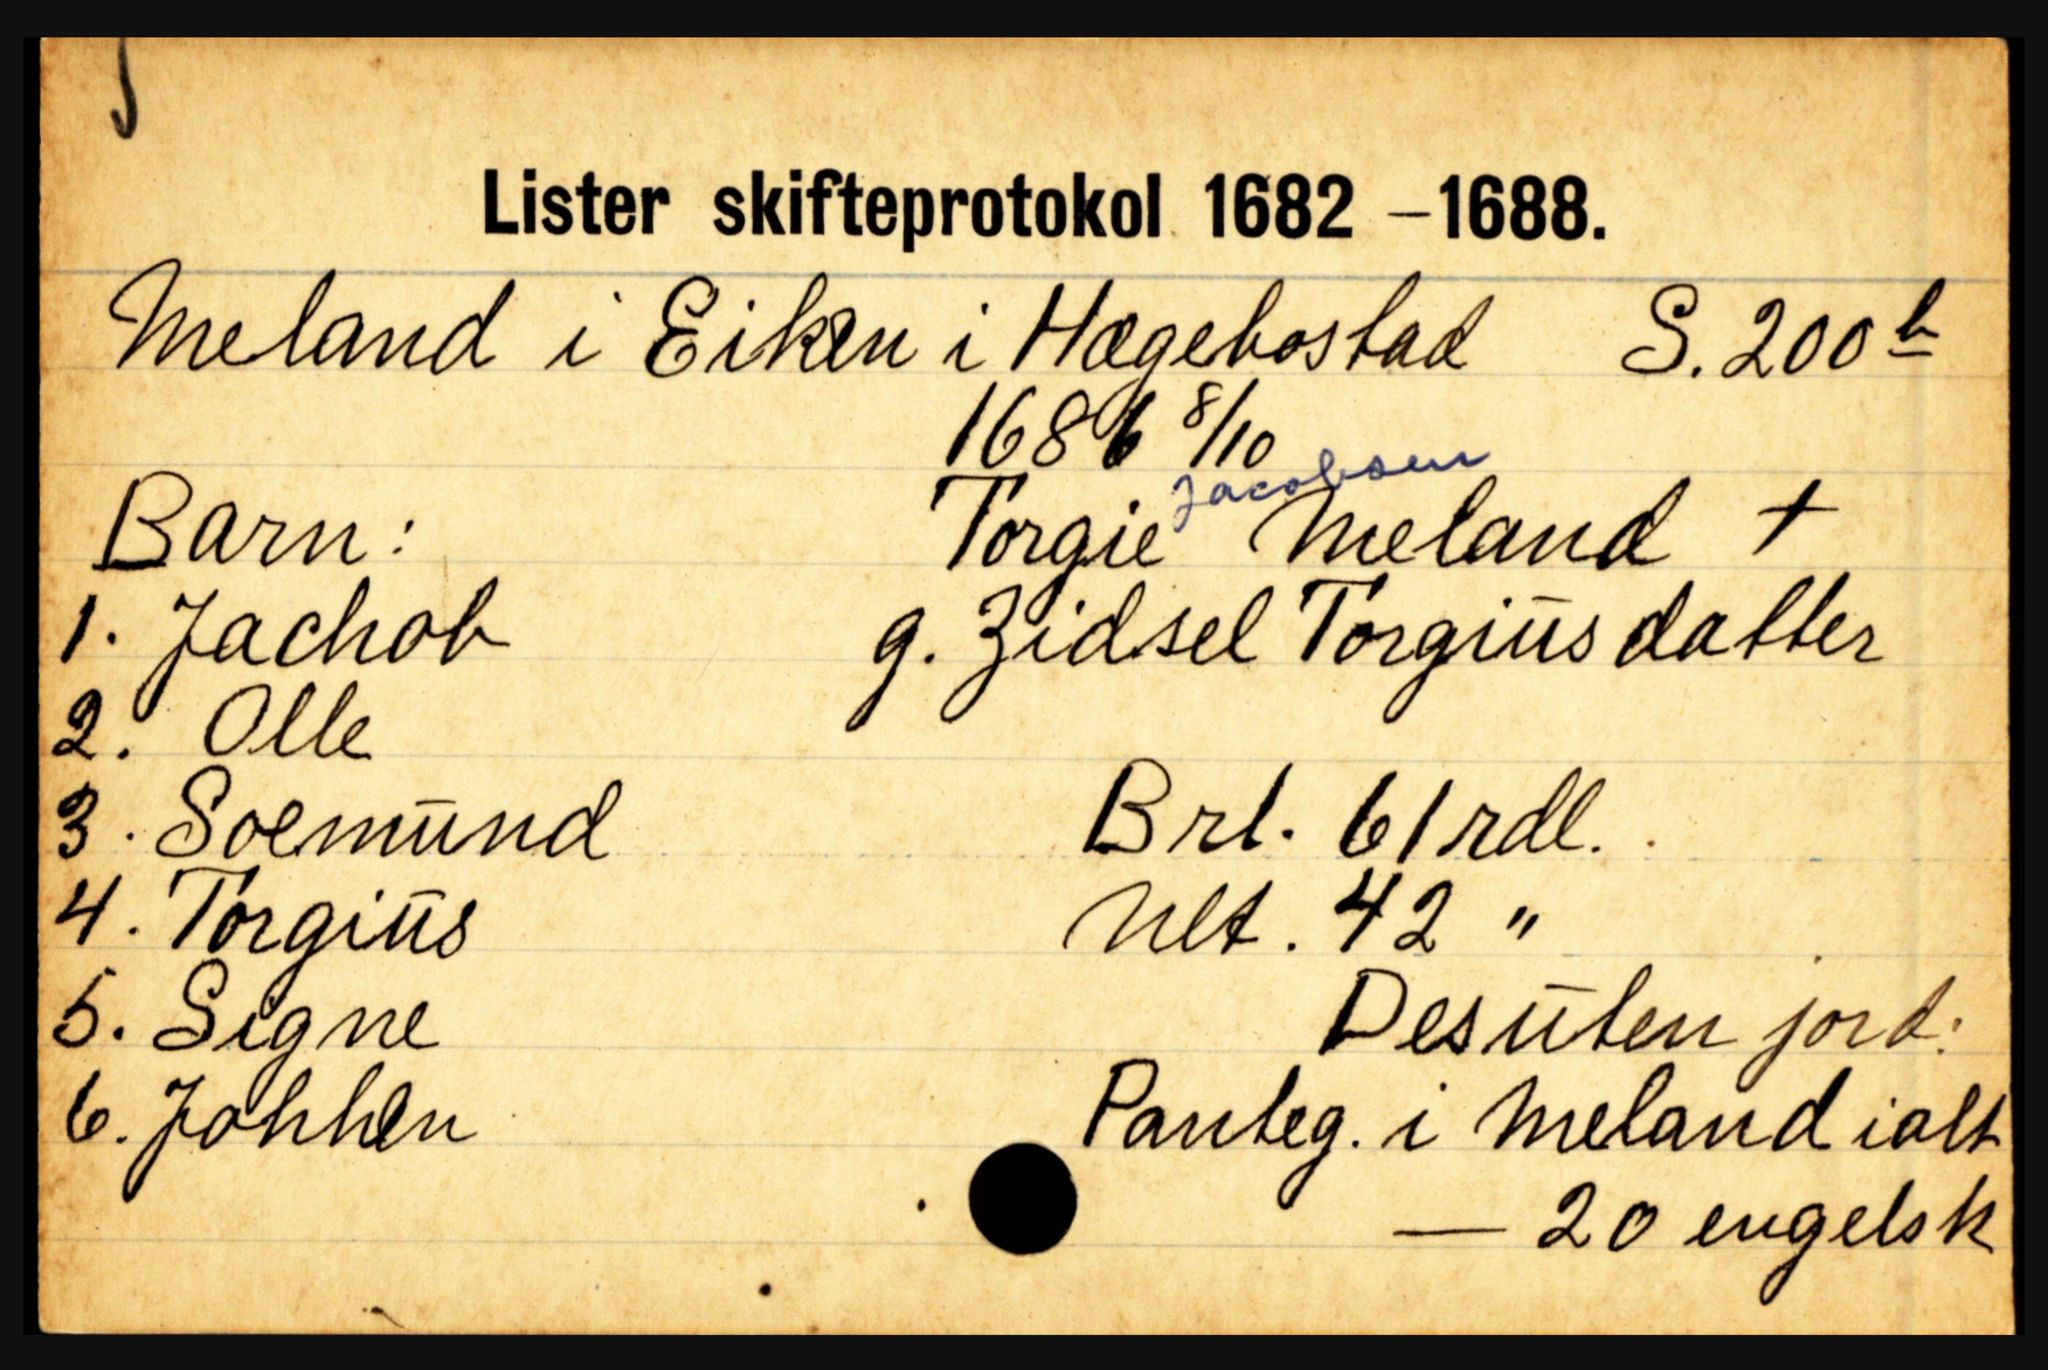 Lister skifteprotokol 1682 – 1688.
Meland i Eiken i Hægebostad S. 200 b
1686 8/10
Jacobsen
Barn: Torgie Meland +
1. Jachob g. Zidsel Torgiūsdatter
2. Olle
3. Soemūnd Brl. 61 rdl.
4. Torgiūs Nlt. 42 "
5. Signe Desūten jord:
6. Johhen Panteg. i Meland ialt
— 20 engelsk